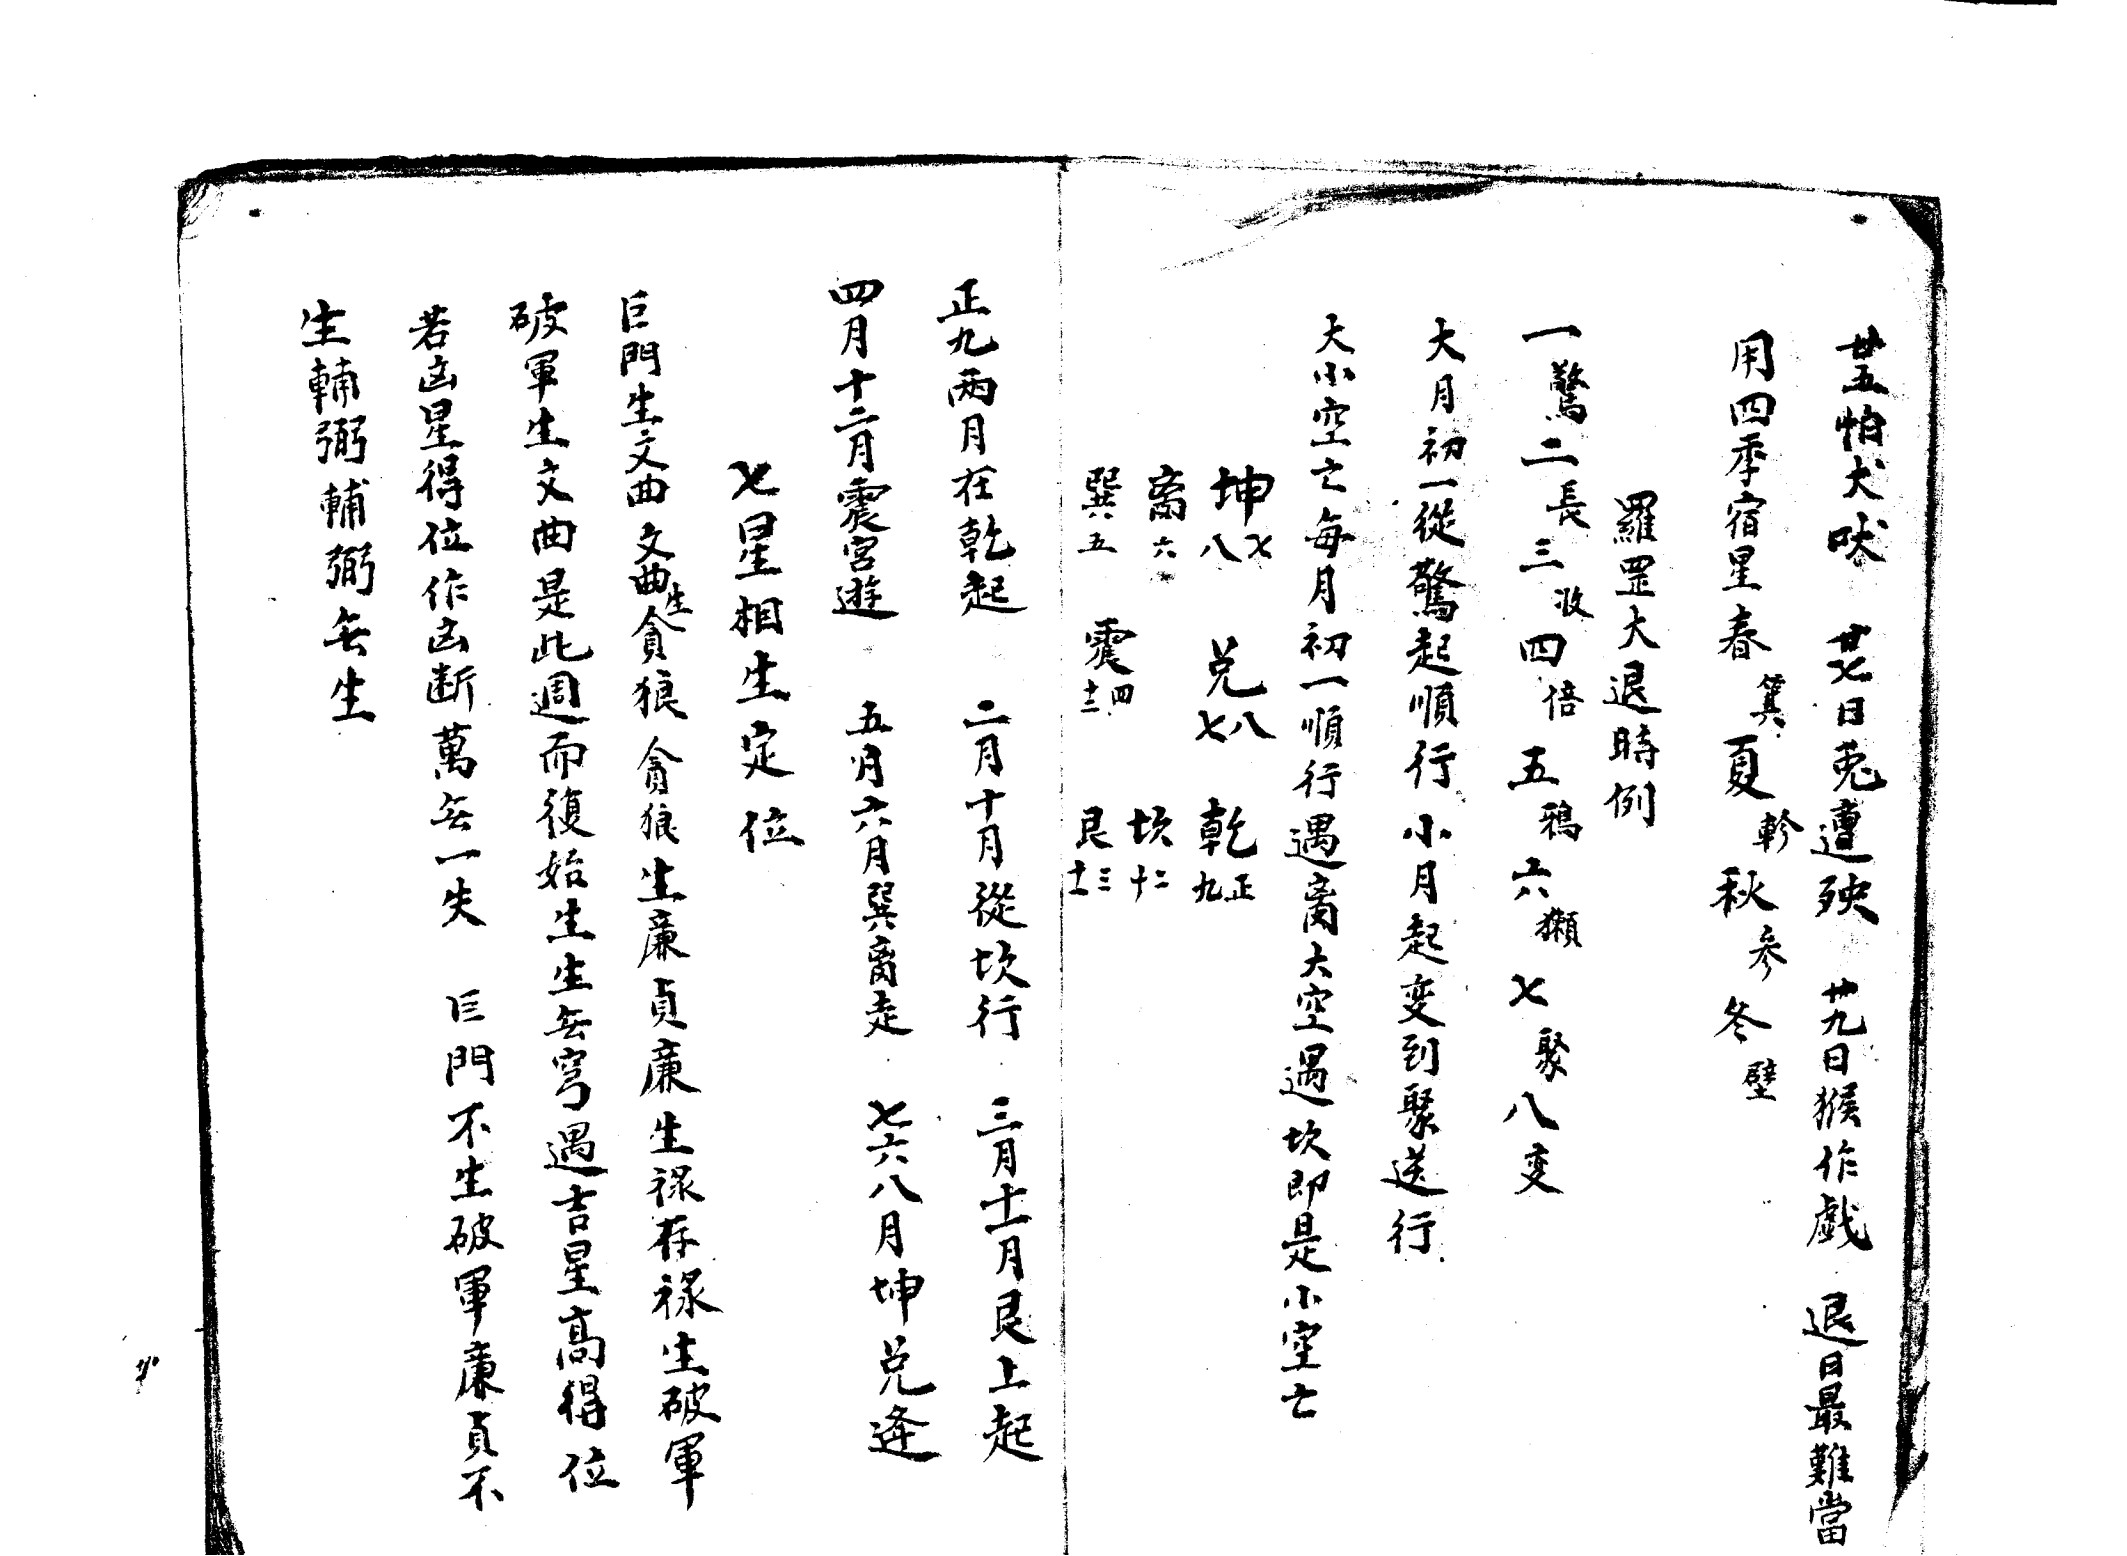 廿五怕犬吠 廿七日兎遭殃 廿九日猴作戲 退日最難當
用四季宿星春箕夏軫秋参冬壁
羅罡大退時例
一驚二長三收四倍五鴉六獺七聚八变
大月初一從驚起順行小月起变到聚送行
大小空亡每月初一順行遇离大空遇坎即是小空亡
坤七八 兑八七 乾正九
离六 坎二十
巽五 震四十二 艮三十一
正九兩月在乾起 二月十月從坎行 三月十一月艮上起
四月十二月震宮遊 五月六月巽离走 七六八月坤兑逄
七星相生定位
巨門生文曲文曲生貪狼貪狼生廉貞廉生禄存禄生破軍
破軍生文曲是此週而復始生生无穹遇吉星高得位
若凶星得位作凶断萬无一失 巨門不生破軍廉貞不
生輔弼輔弼无生